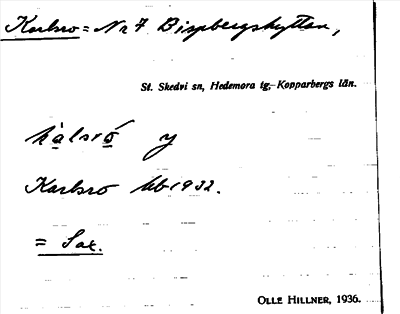 Karlsro = Nr 7 Bispbergshyttan,
St. Skedvi sn, Hedemora tg, Kopparbergs län.
kàlsró y
Karlsro hb 1932.
= Sax.
OLLE HILLNER, 1936.